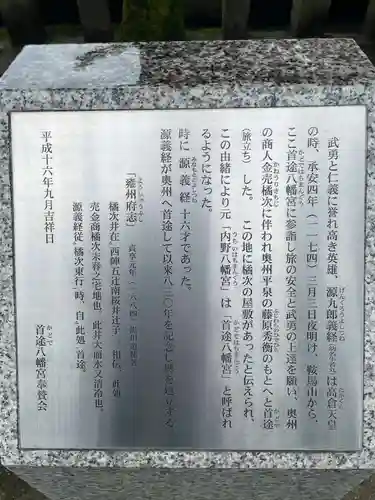 武勇と仁義に誉れ高き英雄、源九郎義経は高倉天皇
の時、承安四年（一一七四）三月三日夜明け、鞍馬山から、
ここ首途八幡宮に参詣し旅の安全と武勇の上達を願い、奥州
の商人金売橘次に伴われ奥州平泉の藤原秀衡のもとへと首途
（旅立ち）した。この地に橘次の屋敷があったと伝えられ、
この由緒により元「内野八幡宮」は「首途八幡宮」と呼ばれ
るようになった。
時に　源　義　経　十六才であった。
源義経が奥州へ首途して以来八三〇年を記念し碑を建立する
「雍州府志」
橘次井在西陣五辻南桜井辻子　相伝、此処
売金商橘次末春之宅地也。此井大而水又清冷也。
源義経従橘次東行時、自此処首途。
平成十六年九月吉祥日
首途八幡宮奉賛会